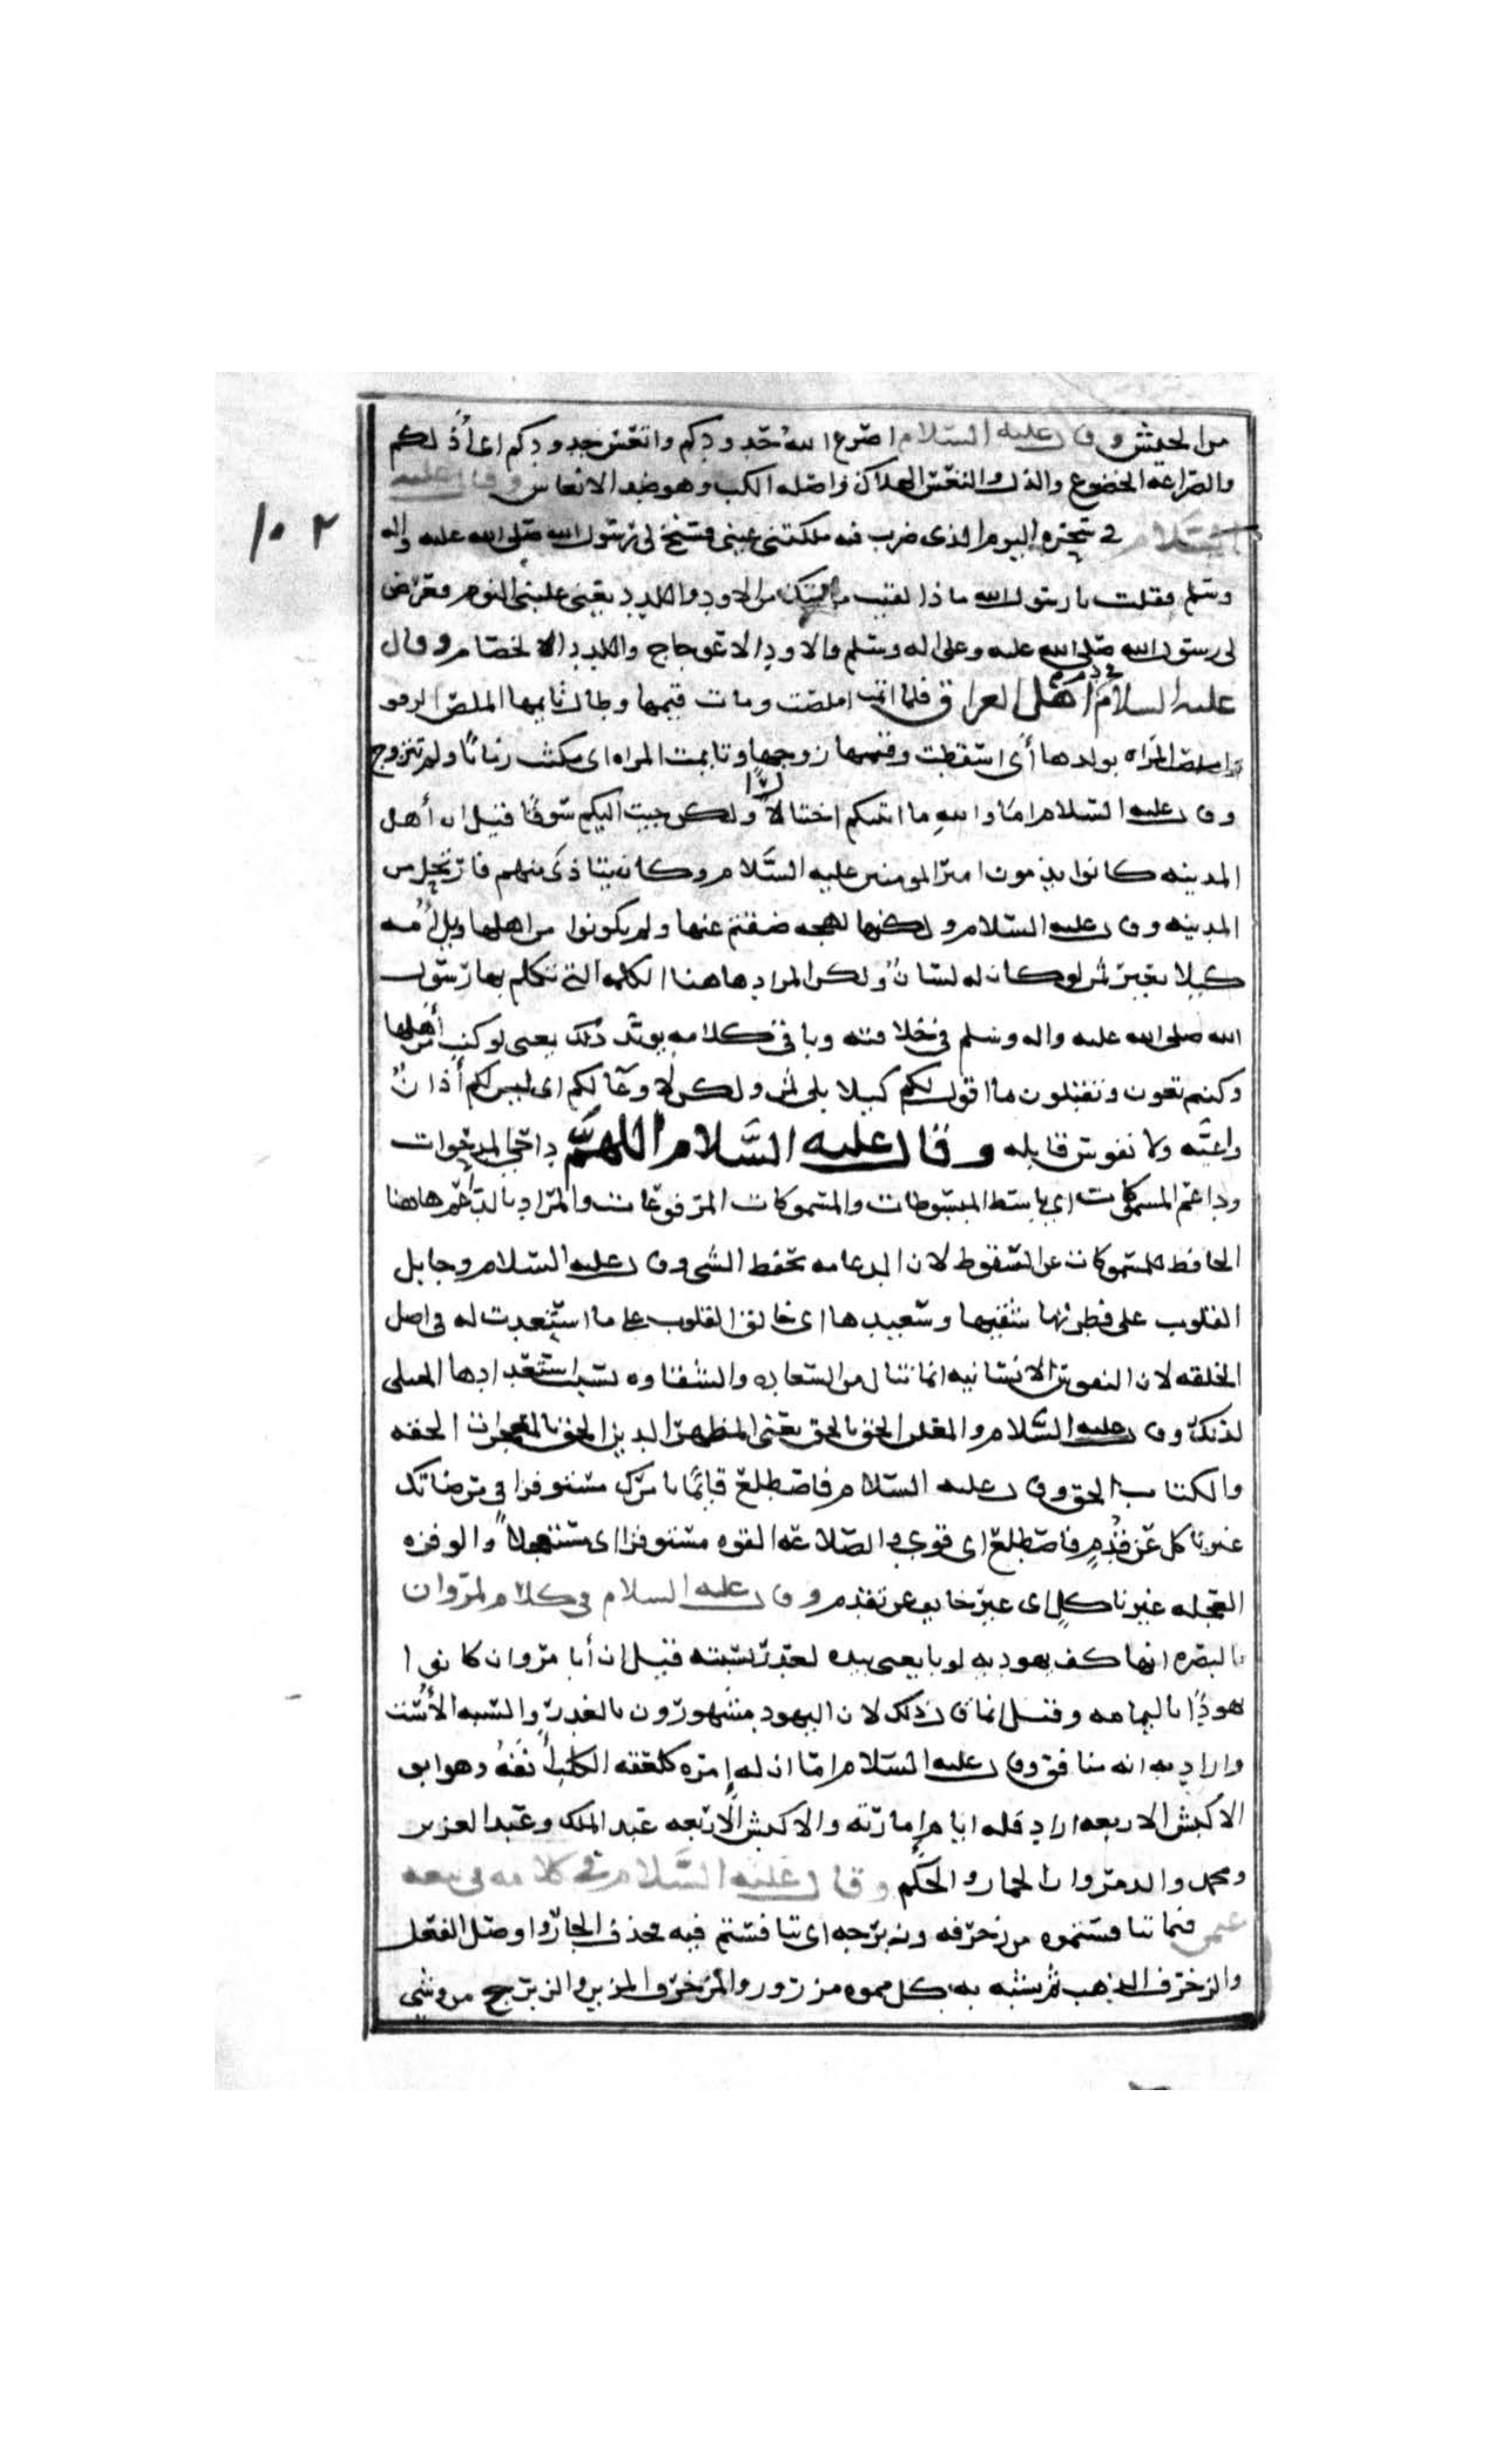 من الجيش وقال عليه السلام اضرع الله خدودكم واتعس جدودكم اى اذلكم
والضراعه الخضوع والذل والتعس الهلاك واصله الكب وهو ضد الانتعاش وقال عليه
السلام فى سحره اليوم الذى ضرب فيه ملكتنى عينى فسنح لى رسول الله صلى الله عليه واله
١٠٢
وسلم فقلت يا رسول الله ماذا لقيت من امتك من الاود واللدد يعنى غلبنى النوم فعرض
لى رسول الله صلى الله عليه وعلى اله وسلم والاود الاعوجاج واللدد الخصام وقال
عليه السلام فى ذم اهل العراق فلما اتمت املصت ومات قيمها وطال تايمها الملص الزهو
واملصت المراه بولدها أى اسقطت وقيمها زوجها وتايمت المراه اى مكثت زمانًا ولم تتزوج
وقال عليه السلام اما والله ما اتيتكم اختيارًا ولكن جيت اليكم سوقًا قيل ان أهل
المدينه كانوا يذمون امير المومنين عليه السلام وكان يتاذى منهم فارتحل من
المدينه وقال عليه السلام ولكنها لهجه غبتم عنها ولم يكونوا من اهلها ويل أمه
كيلا بغير ثمن لو كان له لسان ولكن المراد هاهنا الكلمه التى تكلم بها رسول
الله صلى الله عليه واله وسلم فى خلافته وباقى كلامه يويد ذلك يعنى لو كنتم أهلها
وكنتم تعون وتقبلون ما اقول لكم كيلا بلى ثمن ولكن لا وعا لكم اى ليس لكم أذان
واعيه ولا نفوس قابله وقال عليه السلام اللهم داحى المدحوات
وداعم المسموكات اى باسط المبسوطات والمسموكات المرفوعات والمراد بالداعم هاهنا
الحافظ للمسموكات عن السقوط لان الدعامه تحفظ الشى وقال عليه السلام وجابل
القلوب على فطرتها شقيها وسعيدها اى خالق القلوب على ما استعدت له فى اصل
الخلقه لان النفوس الانسانيه انما تنال من السعاده والشقاوه بسبب استعدادها الاصلى
لذلك وقال عليه السلام والمعلن الحق بالحق يعنى المظهر الدين الحق بالمعجزات الحقه
والكتاب الحق وقال عليه السلام فاضطلع قائمًا بامرك مستوفزا فى مرضاتك
غير ناكل عن قدم فاضطلع اى قوى والضلاعه القوه مستوفزا اى مستعجلًا والوفزه
العجله غير ناكل اى غير خايف عن تقدم وقال عليه السلام فى كلام لمروان
بالبصره انها كف يهوديه لو بايعنى بيده لغدر بسبته قيل ان أبا مروان كانوا
هودًا باليمامه وقيل انما قال ذلك لان اليهود مشهورون بالغدر والسبه الأست
واراد به انه منافق وقال عليه السلام اما ان له إمره كلعقه الكلب أنفه وهو ابو
الاكبش الاربعه اراد قله ايام إمارته والاكبش الاربعه عبد الملك وعبد العزيز
ومحمد والد مروان الحمار والحكم وقال عليه السلام فى كلامه فى بيعه
عثمن فيما تنافستموه من زخرفه وزبرجه اى تنافستم فيه فحذف الجار واوصل الفعل
والزخرف الذهب ثم يشبه به كل مموه مزور والمزخرف المزين والزبرج من وشى